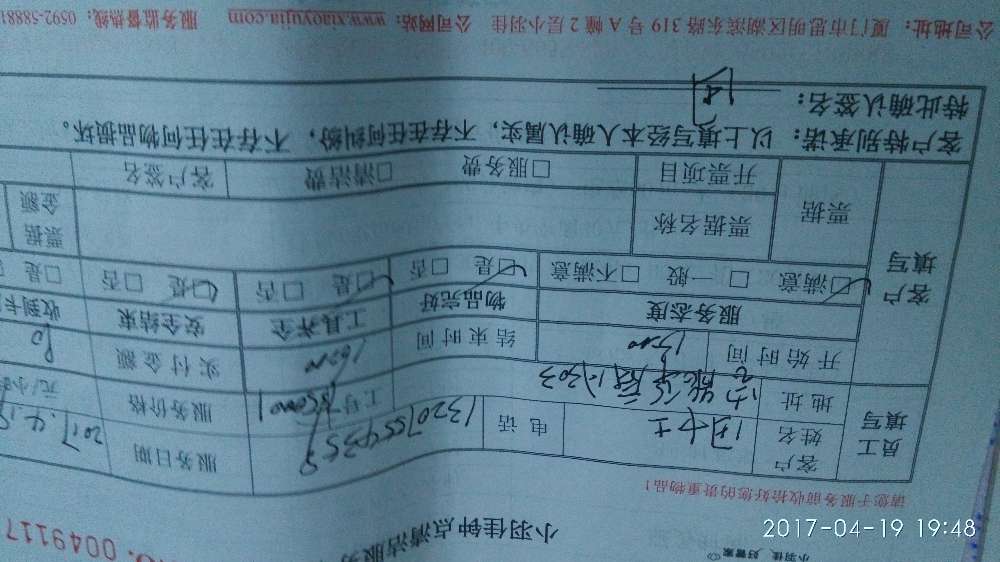 小羽佳 好管家
小羽佳钟点清洁服务
NO. 0049117
请您于服务前收拾好您的贵重物品！
员工填写
客户姓名 周女士 电话 服务日期
地址 工号 服务价格 元/小
开始时间 15:00 结束时间 实付金额 80
客户填写
服务态度 物品完好 工具齐全 安全结束 收到卡
☑满意 □一般 □不满意 ☑是 □否 ☑是 □否 ☑是 □否 □是
票据 票据名称 票据金额
开票项目 □服务费 □清洁费 客户签名
客户特别承诺：以上填写经本人确认属实，不存在任何纠纷，不存在任何物品损坏。
特此确认签名：
公司地址：厦门市思明区湖滨东路319号A幢2层小羽佳 公司网站：www.xiaoyujia.com 服务监督热线：0592-58881
2017-04-19 19:48